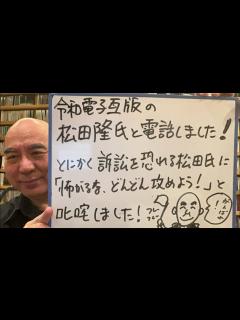 令和電子瓦版の
松田隆氏と電話しました!
とにかく訴訟を恐れる松田氏に
「怖がるな、どんどん攻めよう!」と
叱咤しました!
フレー
フレー
がんばれ
!